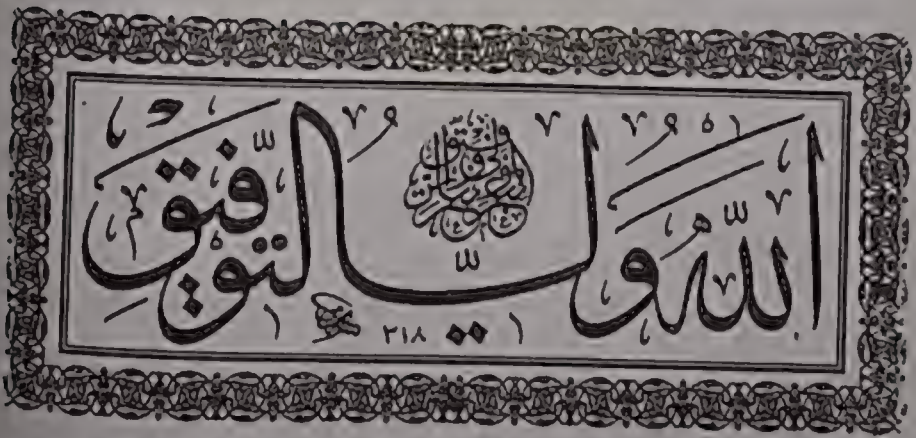 الله ولي التوفيق
٢١٨